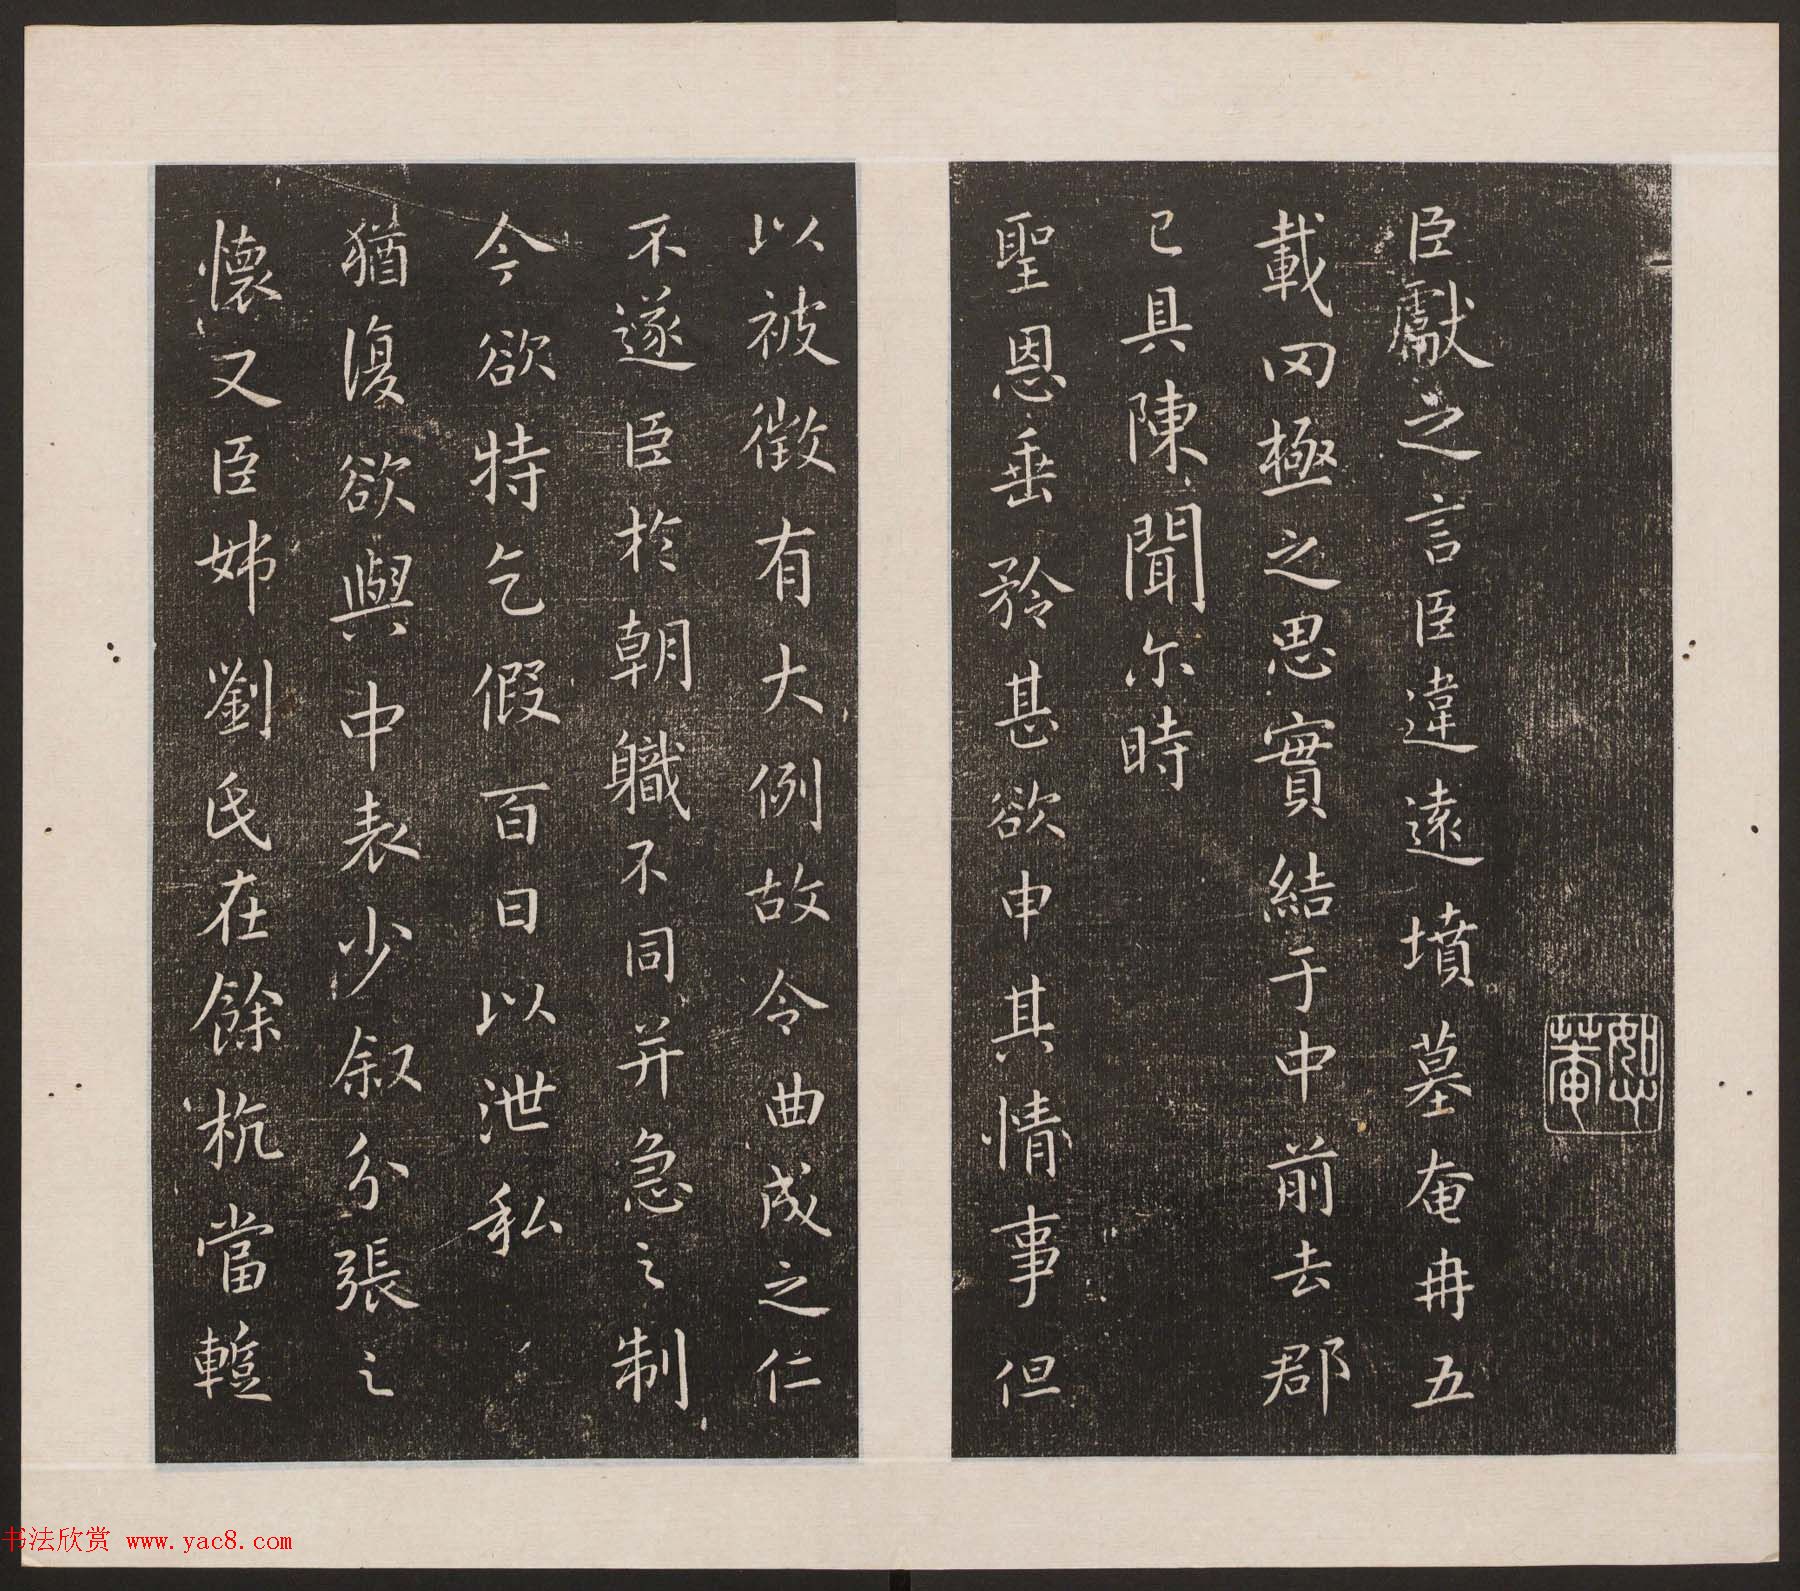 臣獻之言臣違遠墳墓奄冉五
載罔極之思實結于中前去郡
已具陳聞尔時
聖恩垂矜甚欲申其情事但
以被徵有大例故令曲成之仁
不遂臣於朝職不同并急之制
今欲特乞假百日以泄私
猶復欲與中表少叙分張之
懷又臣姊劉氏在餘杭當蹔
书法欣赏 www.yac8.com